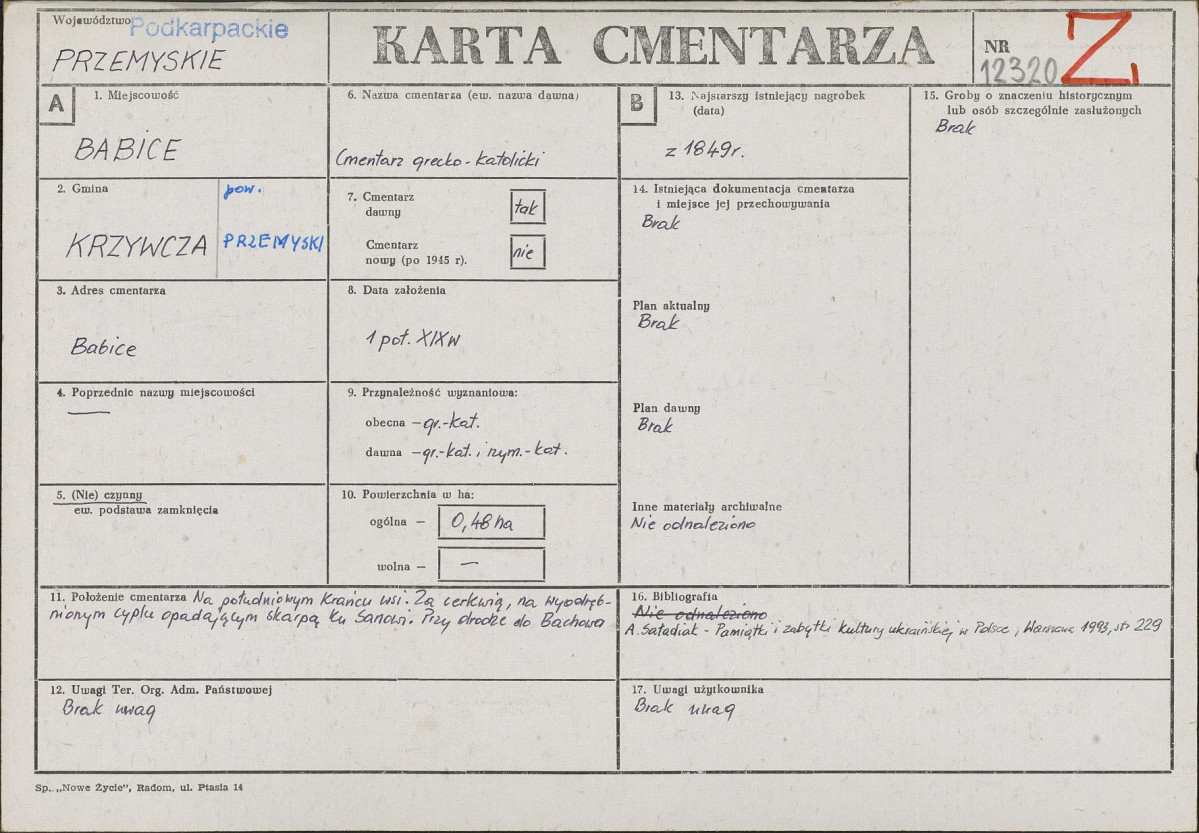 Województwo Podkarpackie
PRZEMYSKIE
KARTA CMENTARZA
NR
12320
Z
A
1. Miejscowość
BABICE
2. Gmina
KRZYWCZA
pow.
PRZEMYSKI
3. Adres cmentarza
Babice
4. Poprzednie nazwy miejscowości
—
5. (Nie) czynny
ew. podstawa zamknięcia
6. Nazwa cmentarza (ew. nazwa dawna)
Cmentarz grecko-katolicki
7. Cmentarz
dawny
tak
Cmentarz
nowy (po 1945 r).
nie
8. Data założenia
1 poł. XIXw
9. Przynależność wyznaniowa:
obecna – gr.-kat.
dawna – gr.-kat. i rzym.-kat.
10. Powierzchnia w ha:
ogólna – 0,48 ha
wolna – —
B
13. Najstarszy istniejący nagrobek
(data)
z 1849r.
14. Istniejąca dokumentacja cmentarza
i miejsce jej przechowywania
Brak
Plan aktualny
Brak
Plan dawny
Brak
Inne materiały archiwalne
Nie odnaleziono
15. Groby o znaczeniu historycznym
lub osób szczególnie zasłużonych
Brak
11. Położenie cmentarza Na południowym krańcu wsi. Za cerkwią, na wyodręb-
nionym cyplu opadającym skarpą ku Sanowi. Przy drodze do Bachowa
12. Uwagi Ter. Org. Adm. Państwowej
Brak uwag
16. Bibliografia
Nie odnaleziono
A. Saładiak - Pamiątki i zabytki kultury ukraińskiej w Polsce, Warszawa 1993, str 229
17. Uwagi użytkownika
Brak uwag
Sp. „Nowe Życie", Radom, ul. Ptasia 14